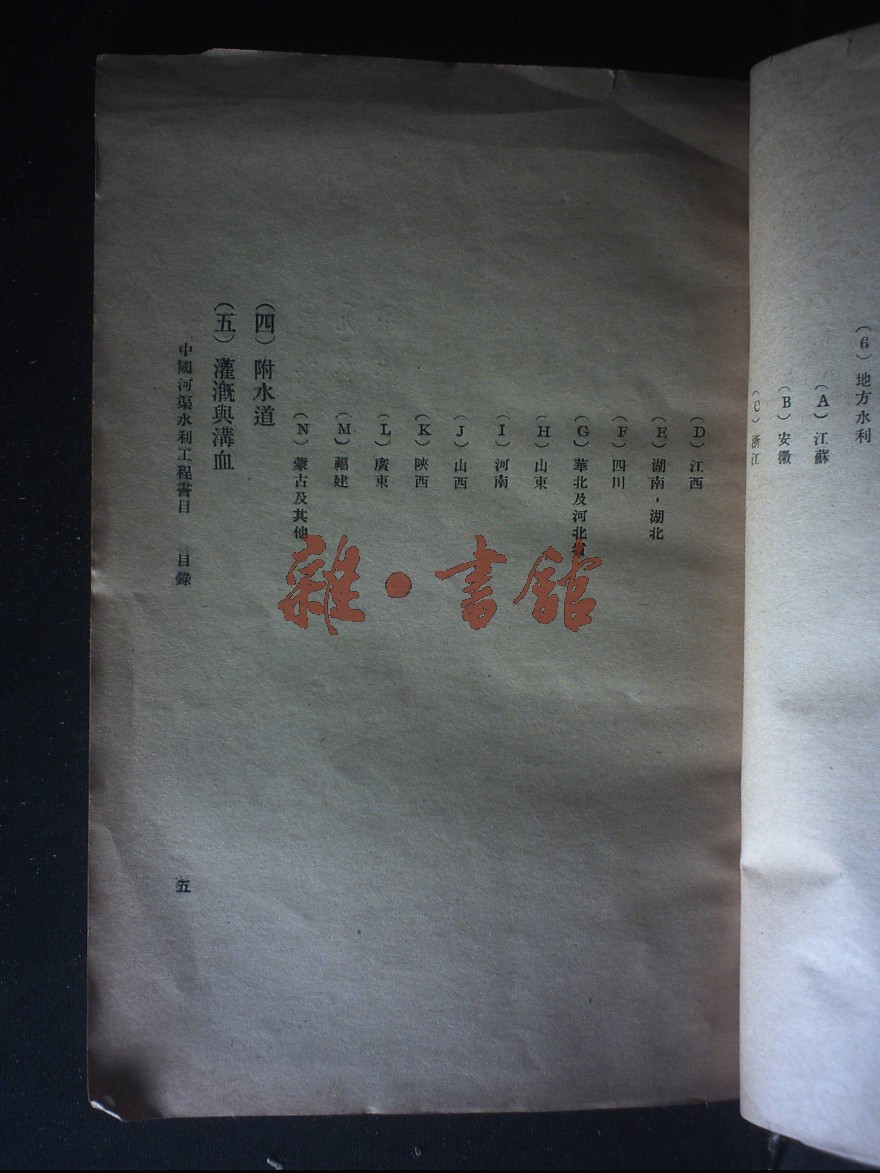 (6) 地方水利
(A) 江蘇
(B) 安徽
(C) 浙江
(D) 江西
(E) 湖南，湖北
(F) 四川
(G) 華北及河北省
(H) 山東
(I) 河南
(J) 山西
(K) 陝西
(L) 廣東
(M) 福建
(N) 蒙古及其他
(四) 附水道
(五) 灌漑與溝血
中國河渠水利工程書目 目錄
五
雜·書館